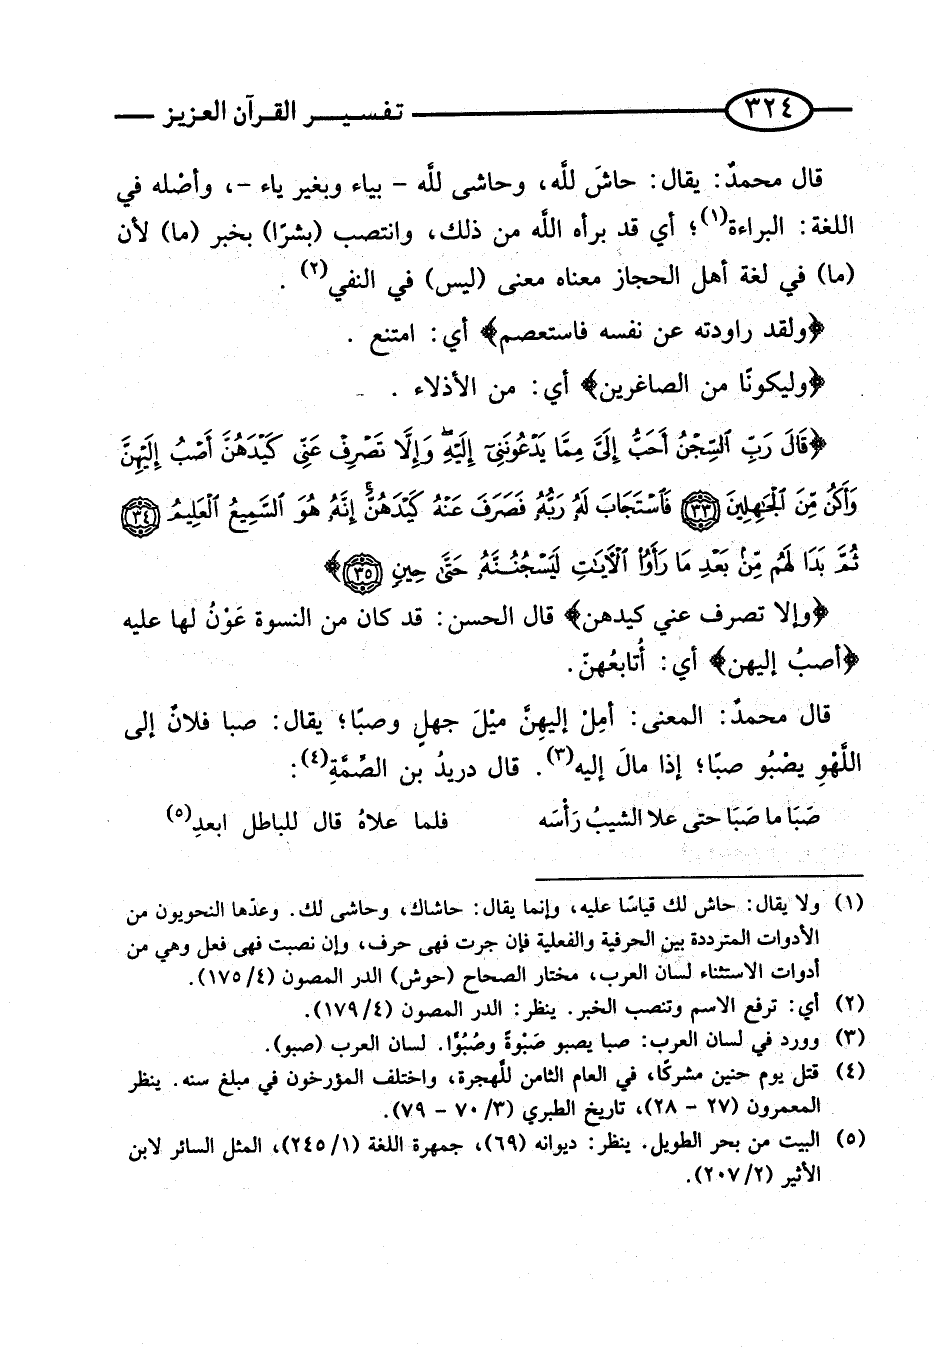 ٣٢٤ تفسير القرآن العزيز
قال محمدٌ: يقال: حاشَ للَّه، وحاشى للَّه – بياء وبغير ياء –، وأصْله في
اللغة: البراءة(١)؛ أي قد برأه اللَّه من ذلك، وانتصب (بشرًا) بخبر (ما) لأن
(ما) في لغة أهل الحجاز معناه معنى (ليس) في النفي(٢).
﴿ولقد راودته عن نفسه فاستعصم﴾ أي: امتنع.
﴿وليكونًا من الصاغرين﴾ أي: من الأذلاء.
﴿قَالَ رَبِّ ٱلسِّجْنُ أَحَبُّ إِلَىَّ مِمَّا يَدْعُونَنِىٓ إِلَيْهِ ۖ وَإِلَّا تَصْرِفْ عَنِّى كَيْدَهُنَّ أَصْبُ إِلَيْهِنَّ
وَأَكُن مِّنَ ٱلْجَٰهِلِينَ ٣٣ فَٱسْتَجَابَ لَهُۥ رَبُّهُۥ فَصَرَفَ عَنْهُ كَيْدَهُنَّ ۚ إِنَّهُۥ هُوَ ٱلسَّمِيعُ ٱلْعَلِيمُ ٣٤
ثُمَّ بَدَا لَهُم مِّنۢ بَعْدِ مَا رَأَوُا۟ ٱلْءَايَٰتِ لَيَسْجُنُنَّهُۥ حَتَّىٰ حِينٍ ٣٥﴾
﴿وإلا تصرف عني كيدهن﴾ قال الحسن: قد كان من النسوة عَوْنٌ لها عليه
﴿أصبُ إليهن﴾ أي: أُتابعُهنّ.
قال محمدٌ: المعنى: أمِلْ إليهِنَّ ميْلَ جهلٍ وصبًا؛ يقال: صبا فلانٌ إلى
اللَّهْوِ يصْبُو صبًا؛ إذا مالَ إليه(٣). قال دريدُ بن الصِّمَّةِ(٤):
صَبَا ما صَبَا حتى علا الشيبُ رَأْسَه فلما علاهُ قال للباطل ابعدِ(٥)
(١) ولا يقال: حاش لك قياسًا عليه، وإنما يقال: حاشاك، وحاشى لك. وعدّها النحويون من
الأدوات المترددة بين الحرفية والفعلية فإن جرت فهى حرف، وإن نصبت فهى فعل وهي من
أدوات الاستثناء لسان العرب، مختار الصحاح (حوش) الدر المصون (٤/١٧٥).
(٢) أي: ترفع الاسم وتنصب الخبر. ينظر: الدر المصون (٤/١٧٩).
(٣) وورد في لسان العرب: صبا يصبو صَبْوةً وصُبُوًّا. لسان العرب (صبو).
(٤) قتل يوم حنين مشركًا، في العام الثامن للَّهجرة، واختلف المؤرخون في مبلغ سنه. ينظر
المعمرون (٢٧ – ٢٨)، تاريخ الطبري (٣/٧٠ – ٧٩).
(٥) البيت من بحر الطويل. ينظر: ديوانه (٦٩)، جمهرة اللغة (١/٢٤٥)، المثل السائر لابن
الأثير (٢/٢٠٧).